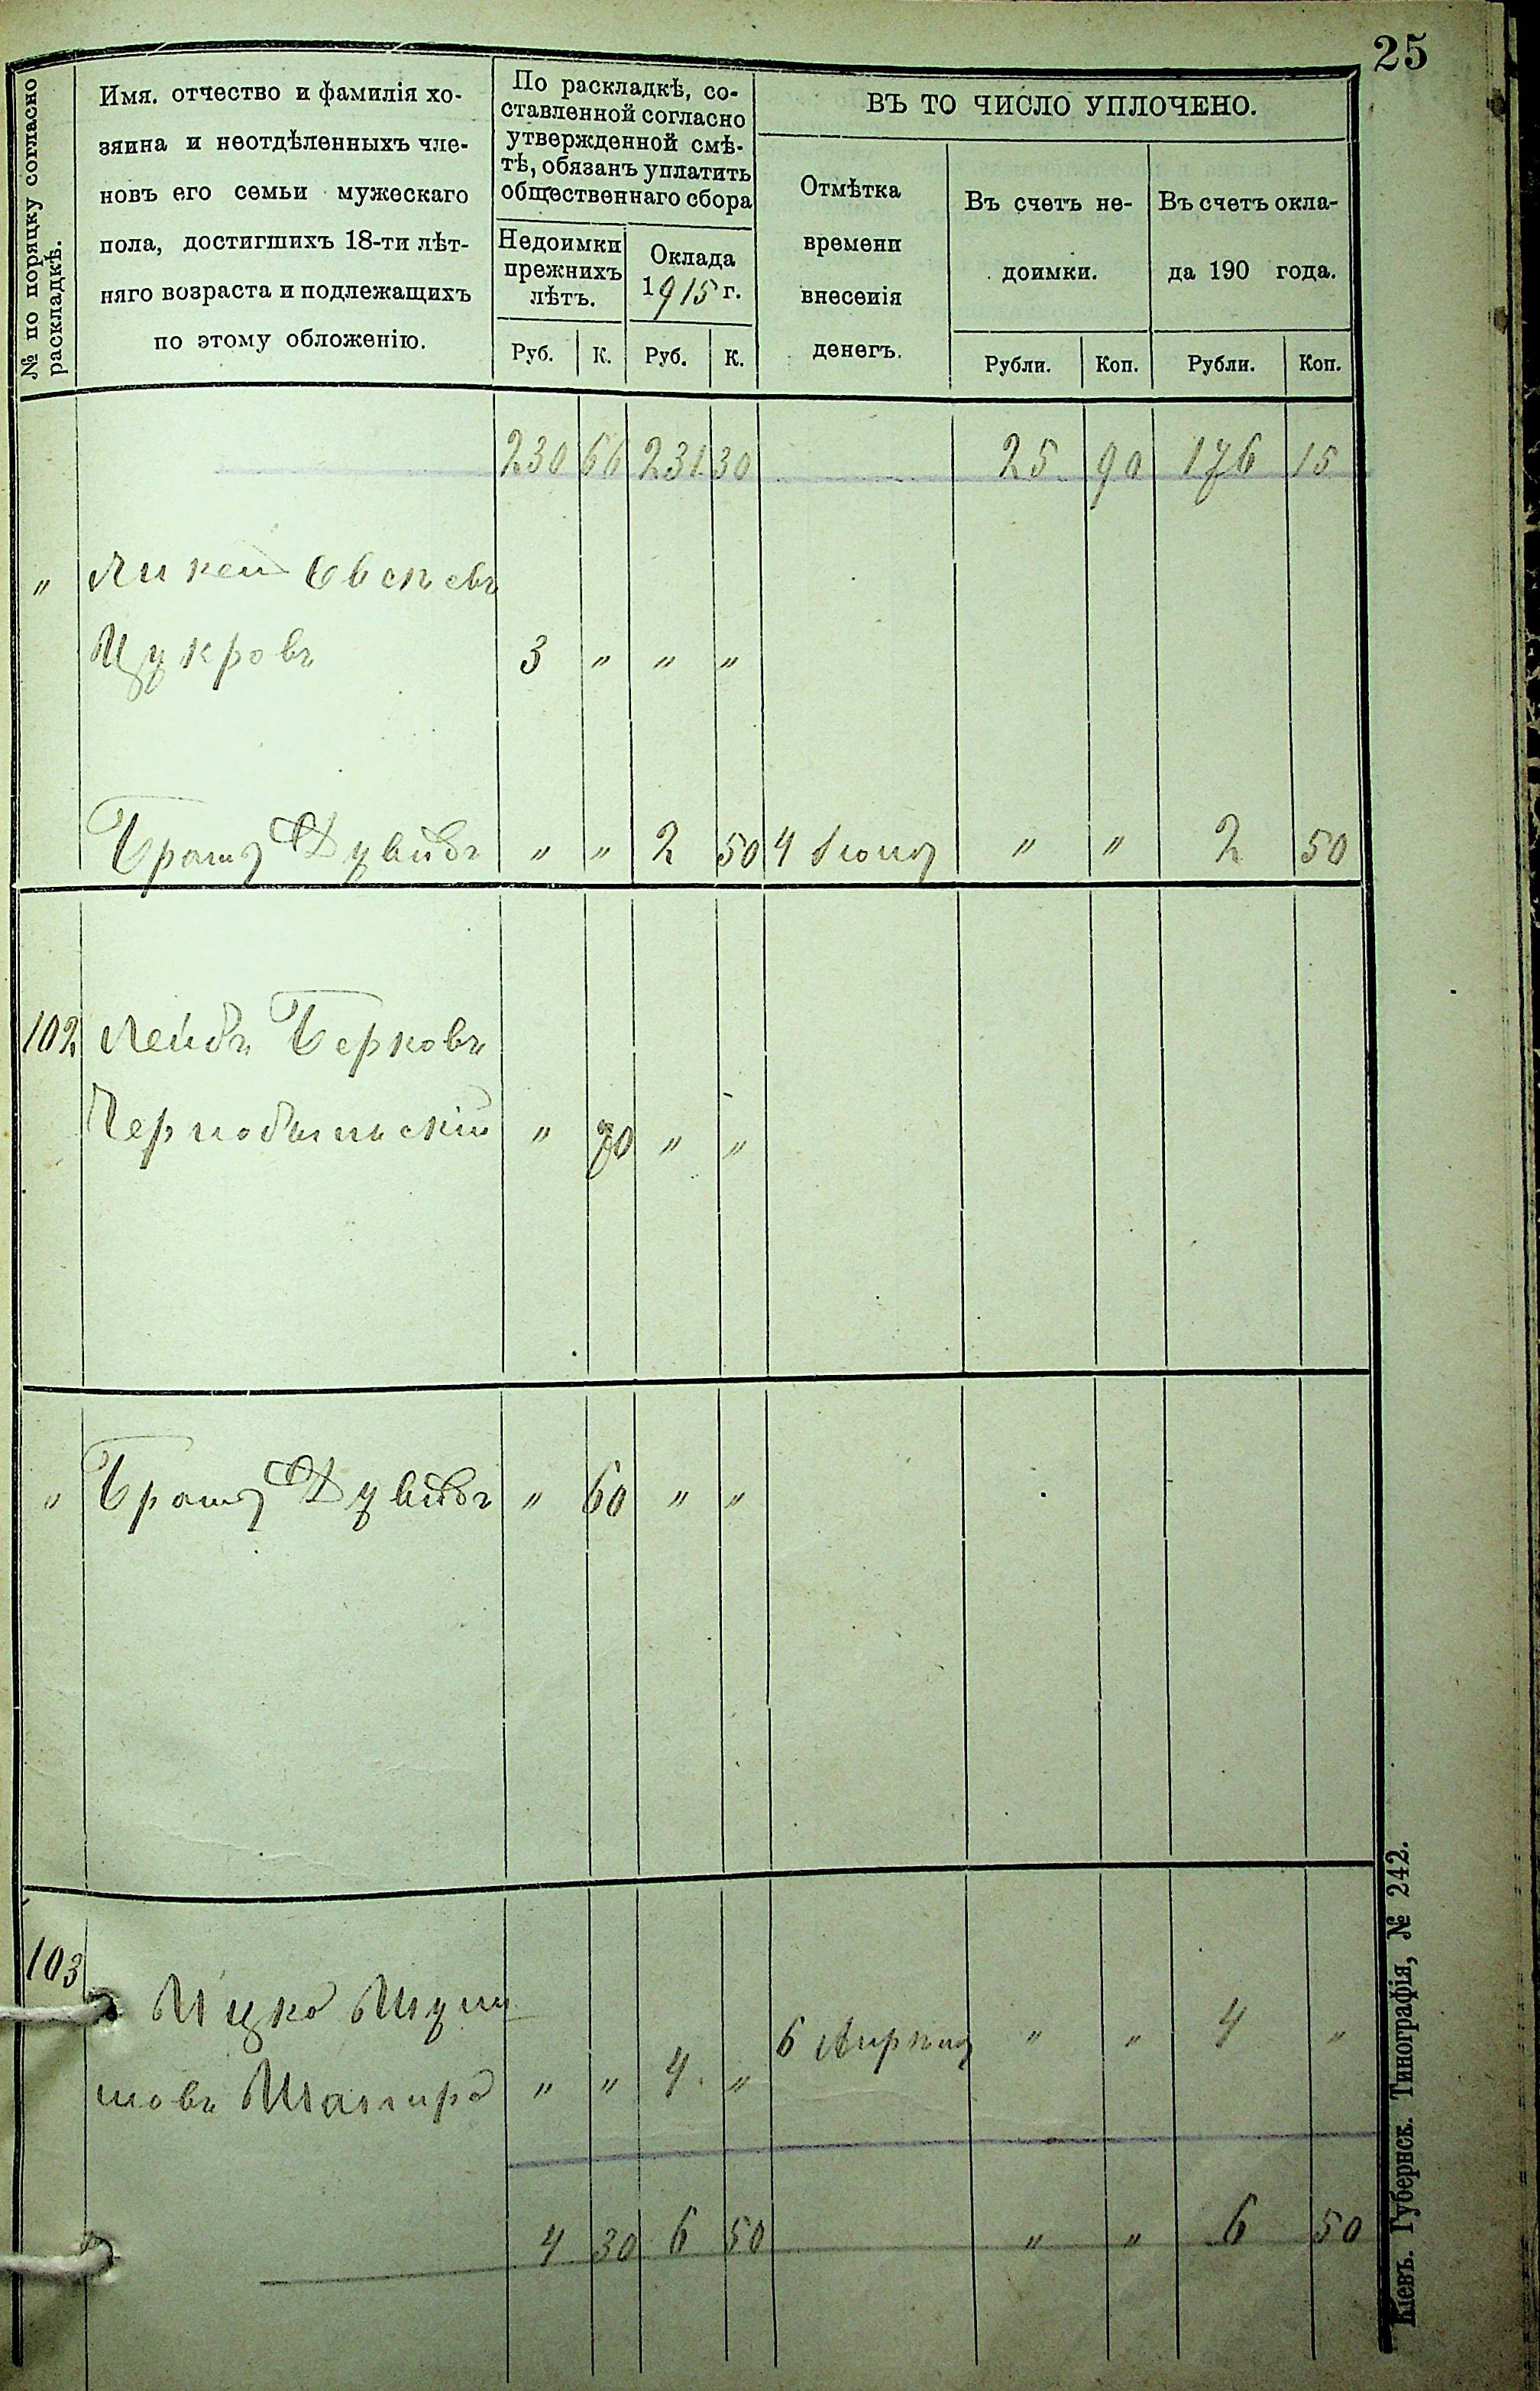 25
№ по поряцку согласно
раскладкѣ.
Имя. отчество и фамилія хо-
зяина и неотдѣленныхъ чле-
новъ его семьи мужескаго
пола, достигшихъ 18-ти лѣт-
няго возраста и подлежащихъ
по этому обложенію.
По раскладкѣ, со-
ставленной согласно
утвержденной смѣ-
тѣ, обязанъ уплатить
общественнаго сбора
Недоимки
прежнихъ
лѣтъ.
Руб. К.
Оклада
1915 г.
Руб. К.
ВЪ ТО ЧИСЛО УПЛОЧЕНО.
Отмѣтка
времени
внесенія
денегъ.
Въ счетъ не-
доимки.
Рубли. Коп.
Въ счетъ окла-
да 190 года.
Рубли. Коп.
230 66 231 30 25 90 176 15
"
Цукровъ 3 " " "
Братъ Дувидъ " " 2 50 4 Іюня " " 2 50
102 Лейбъ Берковъ
Чернобыльскій " 70 " "
" Братъ Дувидъ " 60 " "
103
Ицко Шули
мовъ Шапиро " " 4 " 6 Апрѣля " " 4 "
4 30 6 50 " " 6 50
Кіевъ. Губернск. Типографія, № 242.